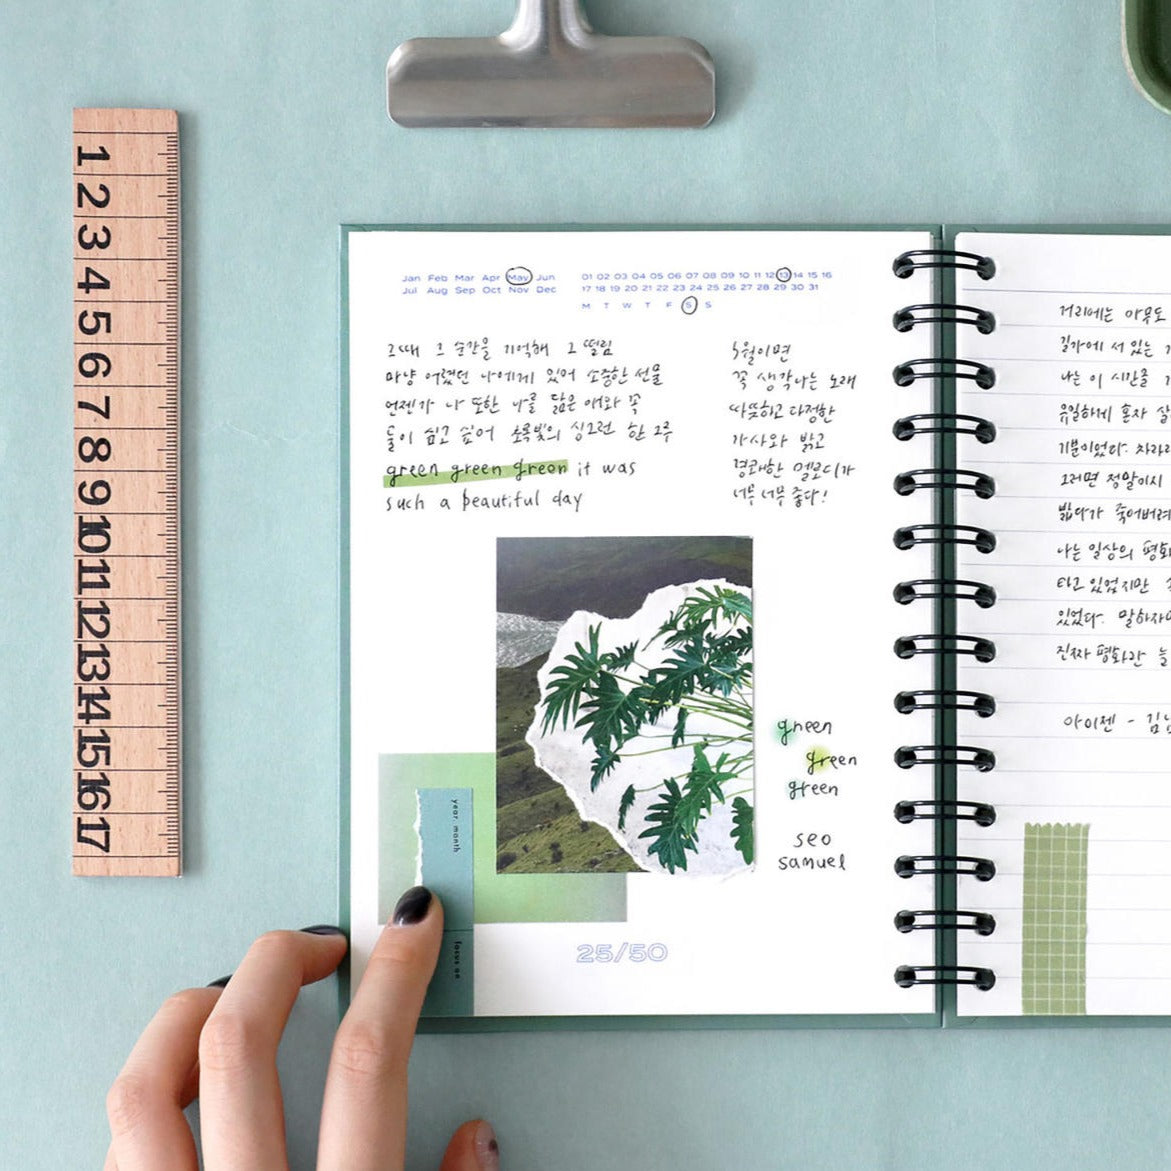 1
2
3
4
5
6
7
8
9
10
11
12
13
14
15
16
17
Jan Feb Mar Apr May Jun
Jul Aug Sep Oct Nov Dec
01 02 03 04 05 06 07 08 09 10 11 12 13 14 15 16
17 18 19 20 21 22 23 24 25 26 27 28 29 30 31
M T W T F S S
그때 그 순간을 기억해 그 떨림
마냥 어렸던 나에게 있어 소중한 선물
언젠가 나 또한 나를 닮은 애와 꼭
둘이 심고 싶어 초록빛의 싱그런 한 그루
green green green it was
such a beautiful day
5월이면
꼭 생각나는 노래
따뜻하고 다정한
가사와 밝고
경쾌한 멜로디가
너무 너무 좋다!
green
green
green
seo
samuel
year, month
focus on
25/50
거리에는 아무도
길가에 서 있는
나는 이 시간을
유일하게 혼자
기분이었다. 차라리
그러면 정말이지
밟다가 죽어버려
나는 일상의 평화
타고 있었지만
있었다. 말하자
진짜 평화란 늘
아이젠 - 김